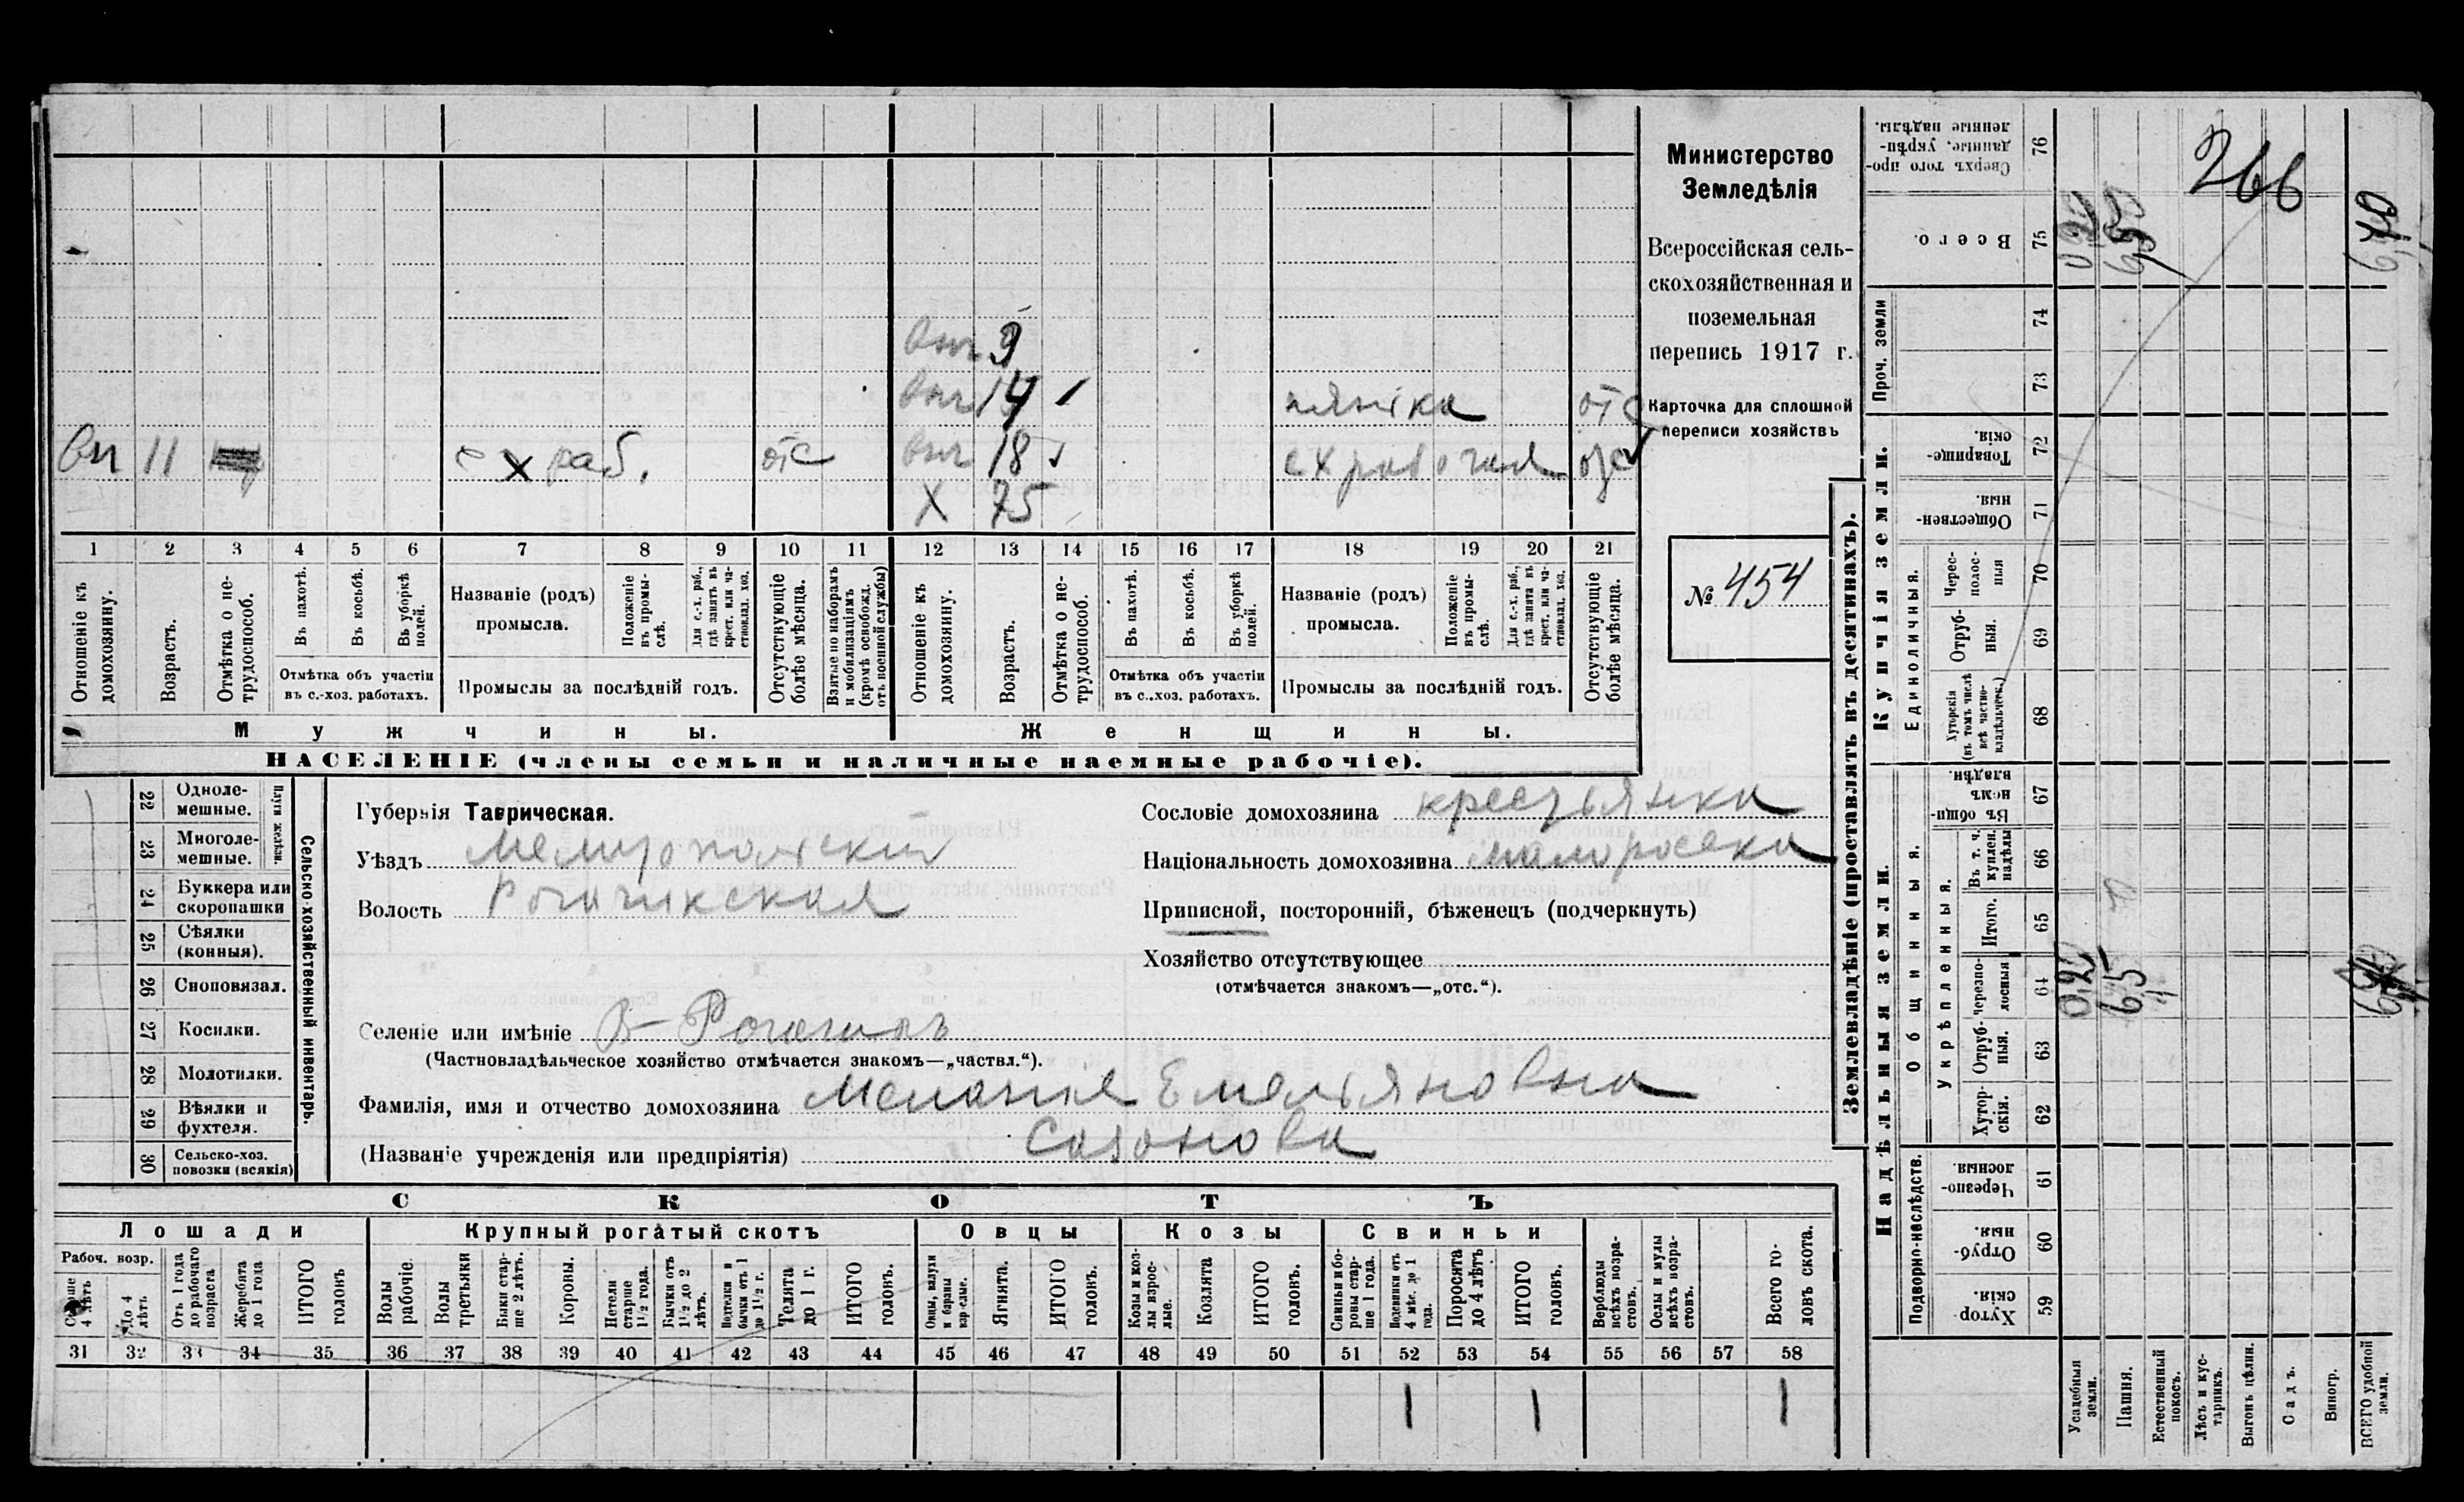 266
Министерство
Земледѣлія
Всероссійская сель-
скохозяйственная и
поземельная
перепись 1917 г.
Карточка для сплошной
переписи хозяйствъ
№ 454
внч 9
внч 14 пянька отс
вн 11 с х раб. отс внч 18 с х рабочая отс
Х 75
1 2 3 4 5 6 7 8 9 10 11 12 13 14 15 16 17 18 19 20 21
Отношеніе къ домохозяину.
Возрастъ.
Отмѣтка о не-трудоспособ.
Въ пахотѣ.
Въ косьбѣ.
Въ уборкѣ полей.
Отмѣтка объ участіи
въ с.-хоз. работахъ.
Названіе (родъ)
промысла.
Положеніе въ промы-слѣ.
Для с.-х. раб., гдѣ занятъ въ крест. или ча-стновлад. хоз.
Промыслы за послѣдній годъ.
Отсутствующіе болѣе мѣсяца.
Взятые по наборамъ и мобилизаціямъ (кромѣ освобожд. отъ военной службы)
Отношеніе къ домохозяину.
Возрастъ.
Отмѣтка о не-трудоспособ.
Въ пахотѣ.
Въ косьбѣ.
Въ уборкѣ полей.
Отмѣтка объ участіи
въ с..хоз. работахъ.
Названіе (родъ)
промысла.
Положеніе въ промы-слѣ.
Для с.-х. раб., гдѣ занята въ крест. или ча-стновлад. хоз.
Промыслы за послѣдній годъ.
Отсутствующіе болѣе мѣсяца.
Мужчины. Женщины.
НАСЕЛЕНІЕ (члены семьи и наличные наемные рабочіе).
Сельско-хозяйственный инвентарь.
Плуги желѣзн.
22 Однолемешные.
23 Многолемешные.
24 Буккера или скоропашки
25 Сѣялки (конныя).
26 Сноповязал.
27 Косилки.
28 Молотилки.
29 Вѣялки и фухтеля.
30 Сельско-хоз. повозки (всякія)
Губернія Таврическая.
Уѣздъ Мелитопольскій
Волость Рогачикская
Селеніе или имѣніе В-Рогачикъ
(Частновладѣльческое хозяйство отмѣчается знакомъ—„частвл.“).
Фамилія, имя и отчество домохозяина Меланія Емельяновна
(Названіе учрежденія или предпріятія) Сазонова
Сословіе домохозяина крестьянка
Національность домохозяина малороска
Приписной, посторонній, бѣженецъ (подчеркнуть)
Хозяйство отсутствующее
(отмѣчается знакомъ—„отс.“).
СКОТЪ
Лошади Крупный рогатый скотъ Овцы Козы Свиньи
Рабоч. возр.
Старше 4 лѣтъ
До 4 лѣтъ
Отъ 1 года до рабочаго возраста
Жеребята до 1 года
ИТОГО головъ
Волы рабочіе.
Волы третьяки
Быки стар-ше 2 лѣтъ.
Коровы.
Нетели старше 1½ года.
Бычки отъ 1½ до 2 лѣтъ.
Нетелки и бычки отъ 1 до 1½ г.
Телята до 1 г.
ИТОГО головъ.
Овцы, валухи и бараны взрослые.
Ягнята.
ИТОГО головъ.
Козы и коз-лы взрос-лые.
Козлята
ИТОГО головъ.
Свиньи и бо-ровы стар-ше 1 года.
Подсвинки отъ 4 мѣс. до 1 года.
Поросята до 4 лѣтъ
ИТОГО головъ.
Верблюды всѣхъ возра-стовъ.
Ослы и мулы всѣхъ возра-стовъ.
Всего го-ловъ скота.
31 32 33 34 35 36 37 38 39 40 41 42 43 44 45 46 47 48 49 50 51 52 53 54 55 56 57 58
1 1 1
Землевладѣніе (проставлять въ десятинахъ).
Надѣльныя земли. Купчія земли. Проч. земли
Подворно-наслѣдств.
Общинныя.
Укрѣпленныя.
Единоличныя.
76 Сверхъ того про-данные, укрѣп-ленные надѣлы.
75 Всего.
74
73
72 Товарище-скія.
71 Обществен-ныя.
70 Черес-полос-ныя
69 Отруб-ныя.
68 Хуторскія (въ томъ числѣ всѣ частно-владѣльчес.)
67 Въ общин-номъ владѣн.
66 Въ т. ч. куплен. надѣлы
65 Итого.
64 черезпо-лосныя
63 Отруб-ныя.
62 Хутор-скія.
61 Черезпо-лосныя.
60 Отруб-ныя.
59 Хутор-скія.
Усадебныя земли.
Пашня.
Естественный покосъ.
Лѣсъ и кус-тарникъ.
Выгонъ цѣлин.
Садъ.
Виногр.
ВСЕГО удобной земли.